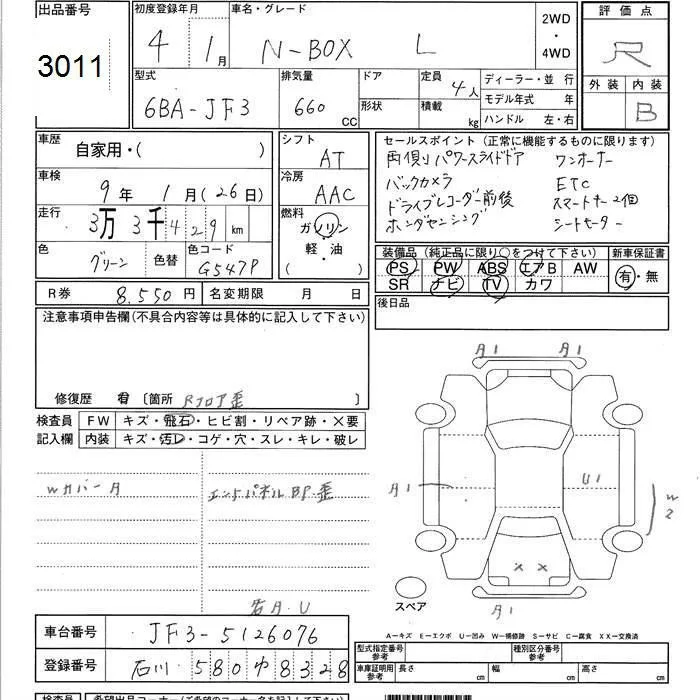 出品番号 初度登録年月 車名・グレード 2WD・4WD 評価点
3011 4年 1月 N-BOX L R
型式 排気量 ドア 定員 ディーラー・並行 外装 内装
6BA-JF3 660 CC 形状 4人 積載 kg モデル年式 年 ハンドル 左・右 B
車歴 シフト セールスポイント(正常に機能するものに限ります)
自家用・( ) AT 両側パワースライドドア ワンオーナー
車検 冷房 バックカメラ ETC
9年 1月(26日) AAC ドライブレコーダー前後 スマートキー2個
走行 3万3千429km 燃料 ガソリン ホンダセンシング シートヒーター
軽・油
( )
色 グリーン 色替 色コード G547P
装備品(純正品に限り○をつけて下さい) 新車保証書
PS PW ABS エアB AW 有・無
SR ナビ TV カワ
R券 8,550円 名変期限 月 日 後日品
注意事項申告欄(不具合内容等は具体的に記入して下さい)
修復歴 有 〔箇所 Rフロア歪 〕
検査員 FW キズ・飛石・ヒビ割・リペア跡・×要
記入欄 内装 キズ・汚レ・コゲ・穴・スレ・キレ・破レ
A1 A1
Wカバー A エンドパネルBP歪
A1 U1 W2
× ×
A1
スペア
A-キズ E-エクボ U-凹み W-補修跡 S-サビ C-腐食 XX-交換済
車台番号 JF3-5126076
型式指定番号 参考 種別区分番号 参考
登録番号 石川 580 ゆ 8328
車庫証明用 参考 長さ cm 幅 cm 高さ cm
検査員 希望出品コーナー(ご希望のコーナー名をご記入下さい)